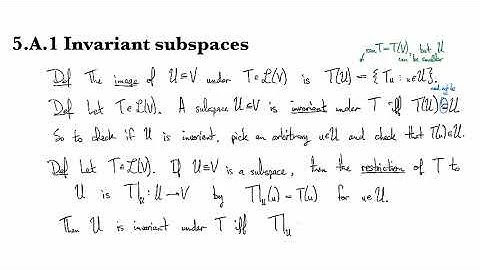 5.A.1 Invariant subspaces
ran T = T(V), but U
can be smaller
Def The image of U ⊆ V under T ∈ L(V) is T(U) = {Tu : u ∈ U}.
Def Let T ∈ L(V). A subspace U ⊆ V is invariant under T iff T(U) ⊆ U
So to check if U is invariant, pick an arbitrary u ∈ U and check that T(u) ∈ U.
Def Let T ∈ L(V). If U ⊆ V is a subspace, then the restriction of T to
U is T|_U : U → V by T|_U(u) = T(u) for u ∈ U.
Then U is invariant under T iff T|_U